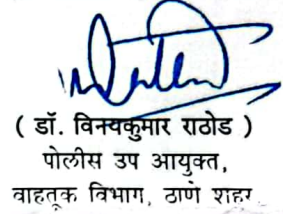 ( डॉ. विनयकुमार राठोड )
पोलीस उप आयुक्त,
वाहतूक विभाग, ठाणे शहर.